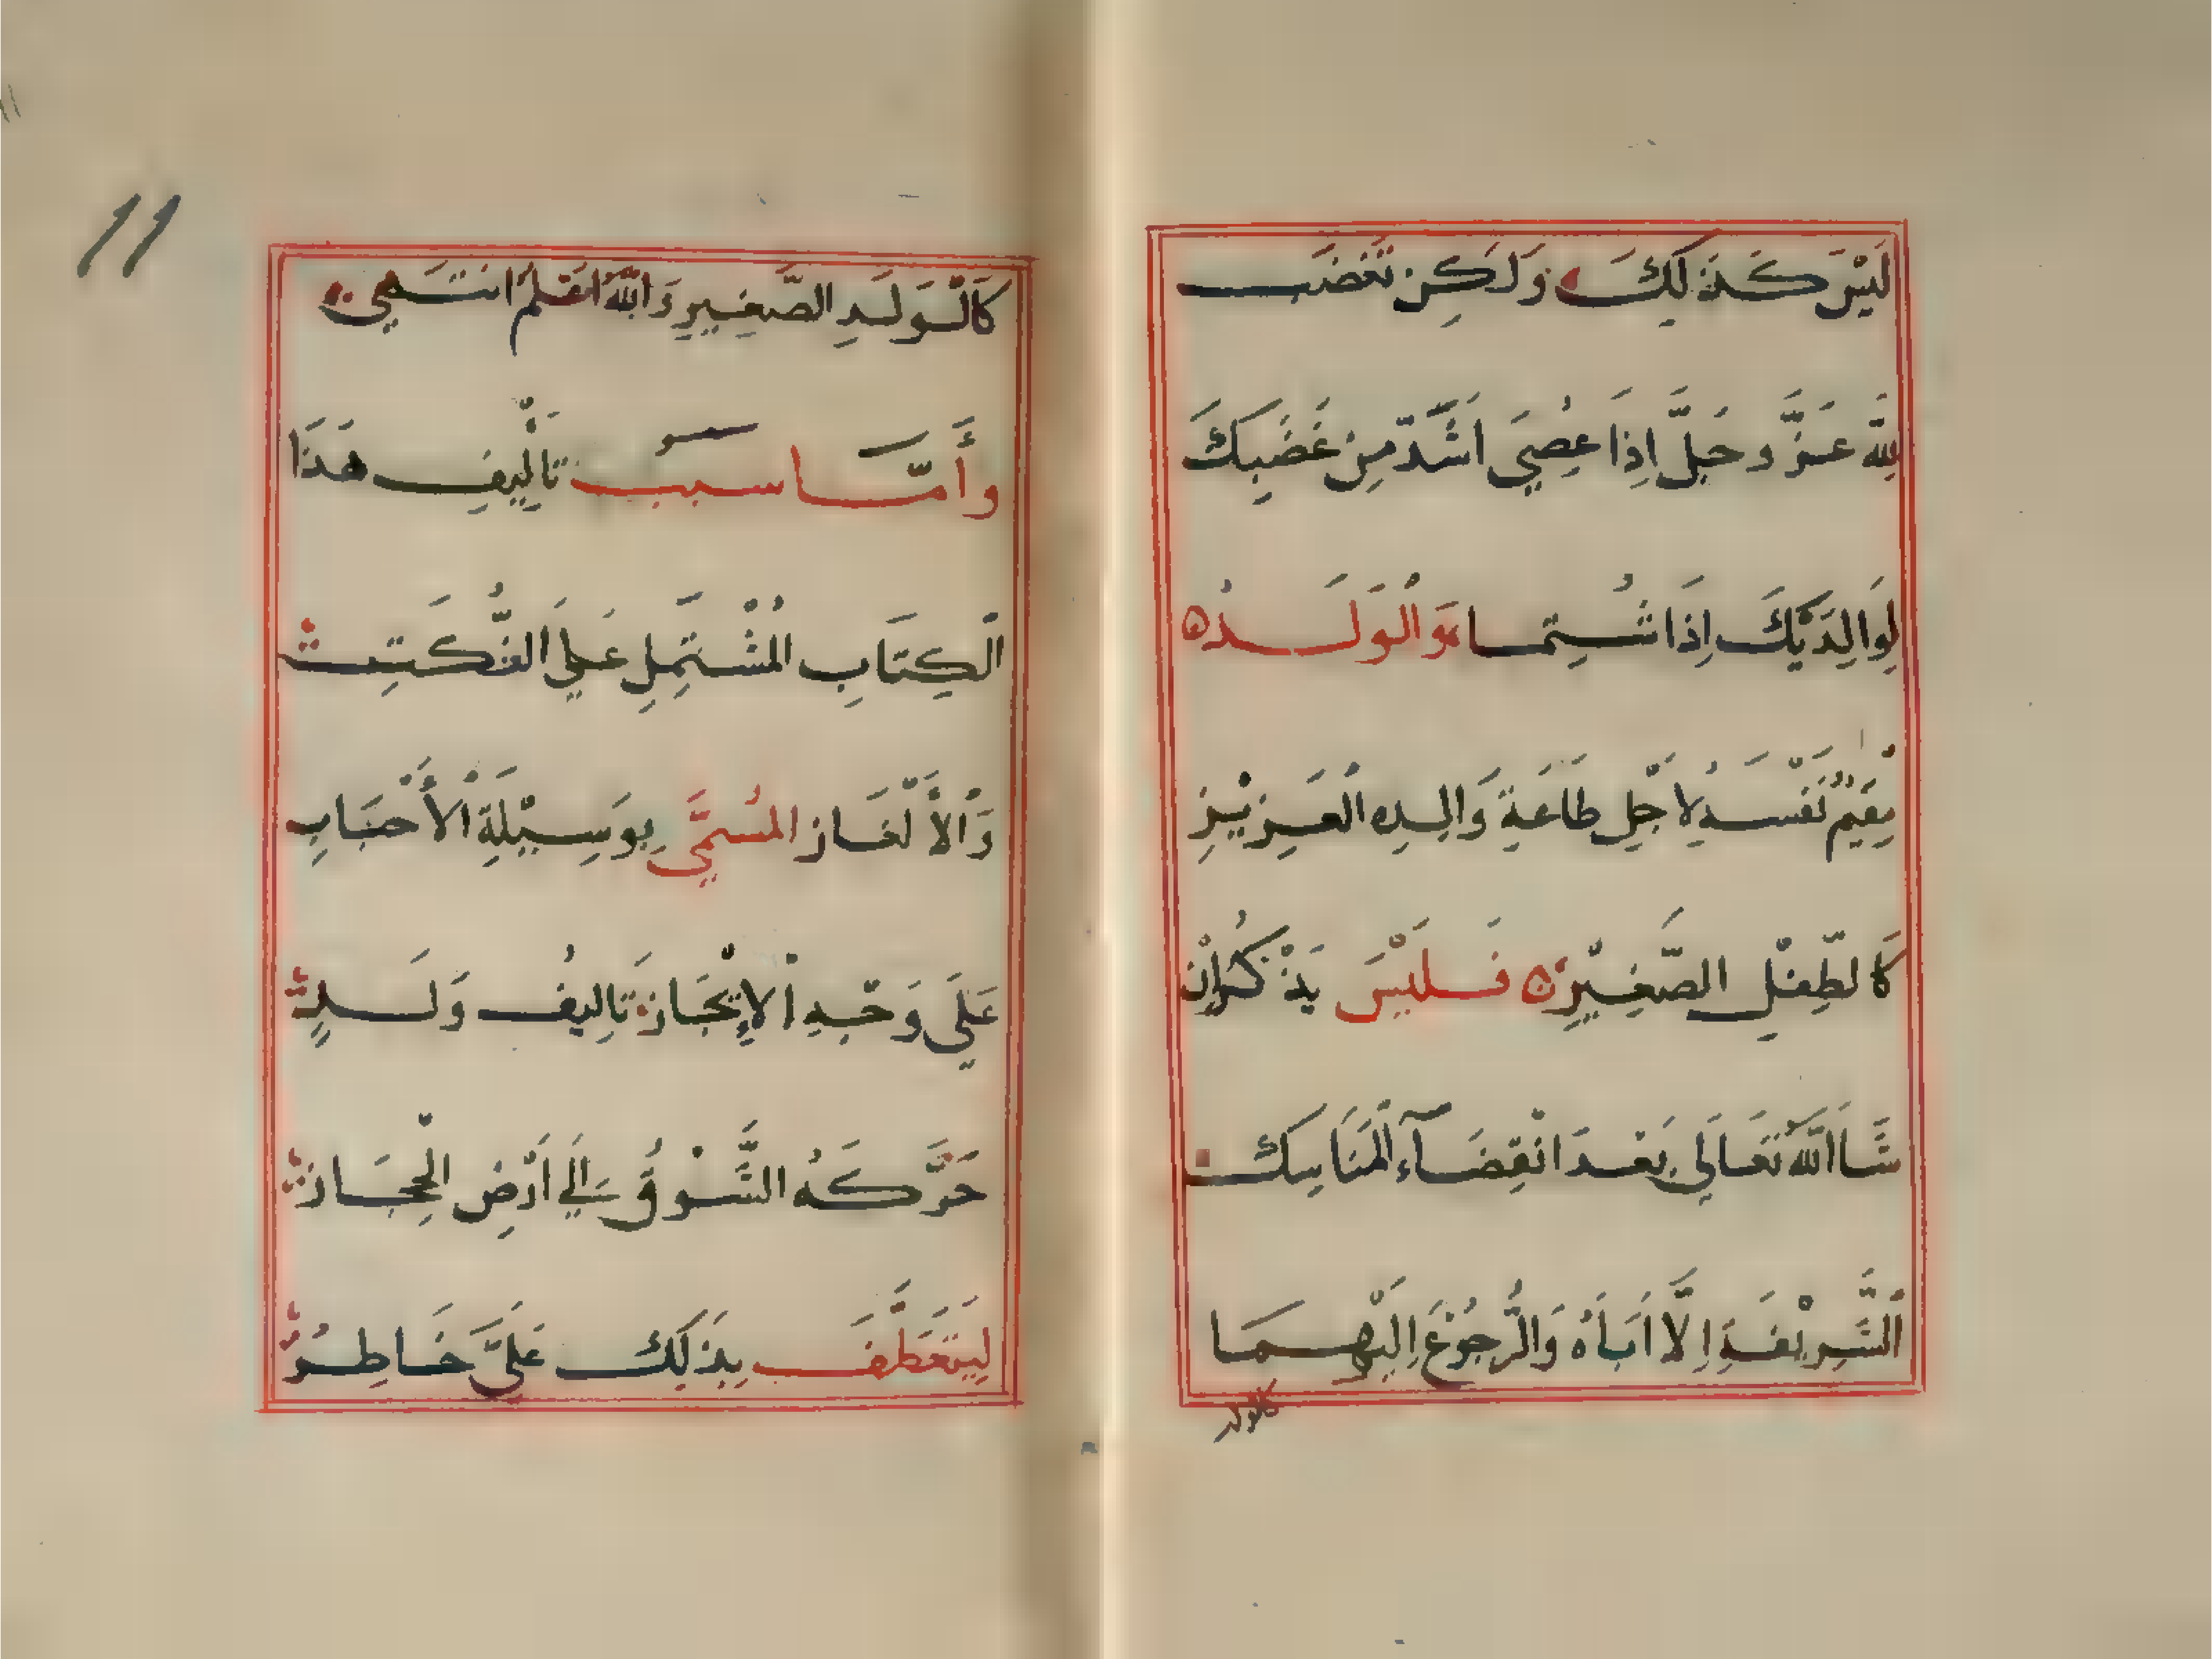 لَيْسَ كَذَلِكَ وَلَكِن تَغْضَب
لِلَّهِ عَزَّ وجَلَّ اِذَا عُصِيَ اَشَدّ مِن غَضَبِكَ
لِوَالِدَيْكَ اِذَا شُتِمَا وَالْوَلَدُ ٥
مُقِيْمٌ نَفْسَهُ لِاَجْلِ طَاعَةِ وَالِدِهِ الْعَزِيْزِ
كَالطِّفْلِ الصَّغِيْرِ ٥ فَلَيْسَ يَذْكُرُ اِنْ
شَاَاللَّهُ تَعَالَى بَعْدَ انْقِضَآءِ الْمَنَاسِكِ
اَلشَّرِيْفَةِ اِلَّا اَبَاَهُ وَالرُّجُوْعَ اِلَيْهِمَا
كالولد
11
كَالْوَلَدِ الصَّغِيرِ وَاللَّهُ اَعْلَمُ انْتَهَي
وَأَمَّا سَبَب تَأْلِيفِ هَذَا
الْكِتَابِ الْمُشْتَمِلِ عَلَي النُّكَتِ
وَالْأَلْغَاز المُسَمَّي بِوَسِيْلَةِ الْأَحْبَابِ
عَلَي وَجْهِ الْإِيْجَاز تَالِيفُ وَلَدٍ
حَرَّكَهُ الشَّوْقُ اِلَي اَرْضِ الْحِجَاز
لِيَتَعَطَّفَ بِذَلِكَ عَلَيَّ خَاطِرُ